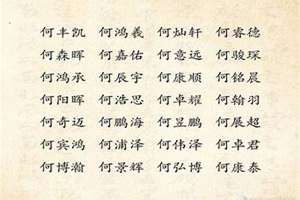 何丰凯 何鸿羲 何灿轩 何睿德
何森晖 何嘉佑 何意远 何骏琛
何鸿承 何辰宇 何康顺 何铭晨
何阳晖 何浩思 何卓耀 何翰羽
何奇迈 何鹏海 何昱鹏 何展超
何宾鸿 何浦泽 何伟泽 何卓君
何博瀚 何景辉 何弘博 何康泰